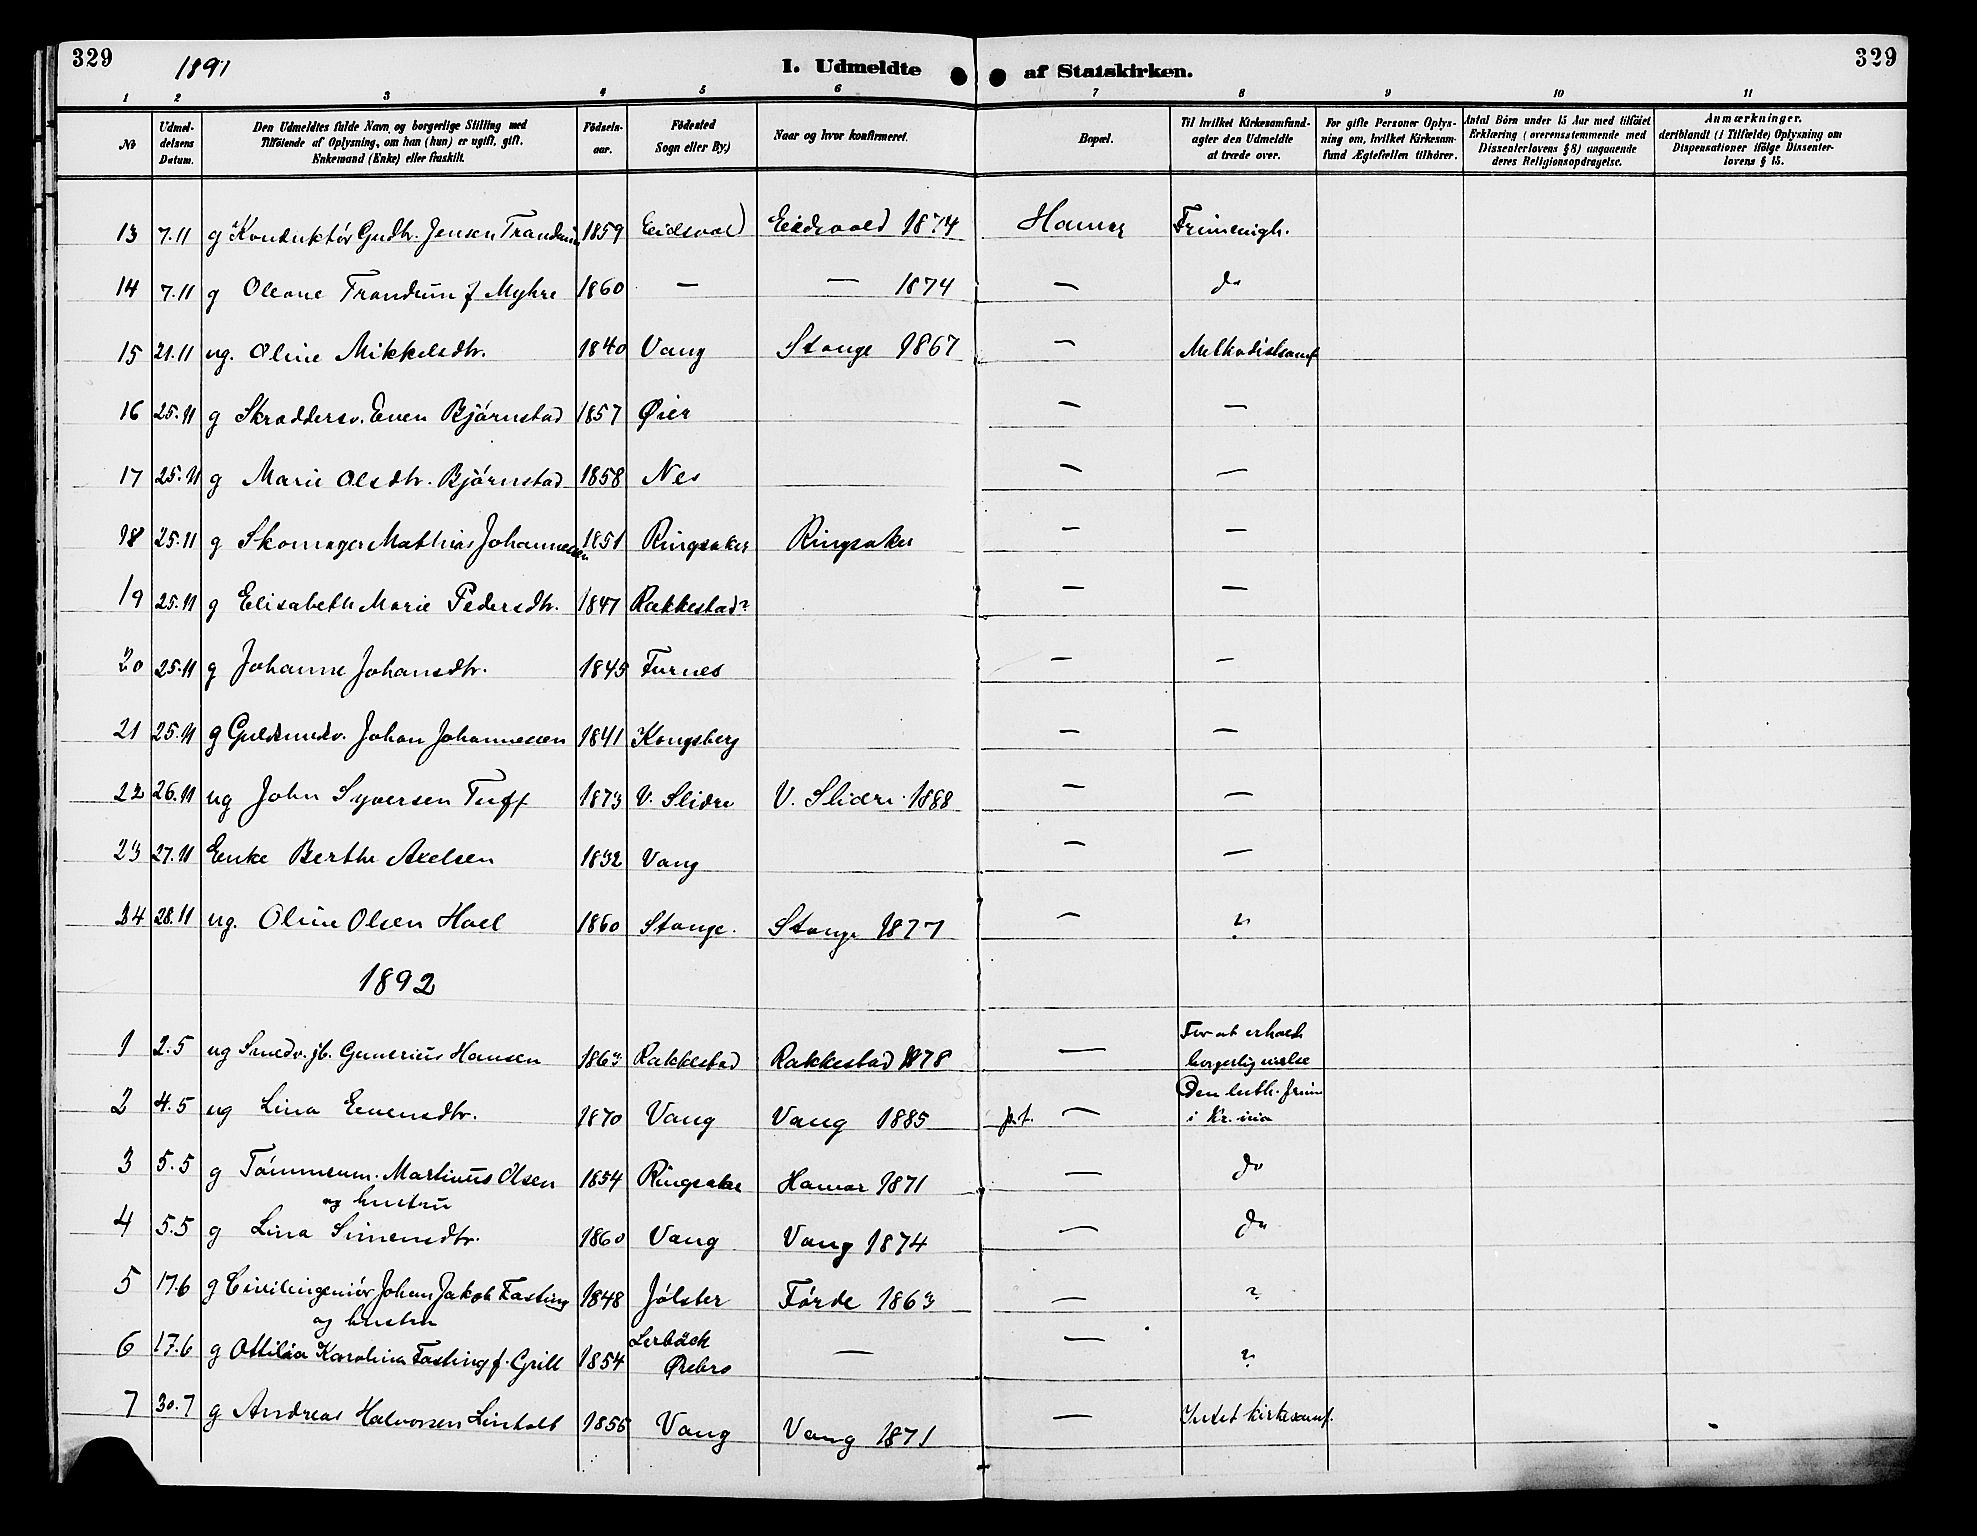 329
1891
I. Udmeldte af Statskirken.
329
1 2 3 4 5 6 7 8 9 10 11
No
Udmeldelsens Datum.
Den Udmeldtes fulde Navn og borgerlige Stilling med Tilföiende af Oplysning, om han (hun) er ugift, gift, Enkemand (Enke) eller fraskilt.
Födselsaar.
Födested Sogn eller By.)
Naar og hvor konfirmeret.
Bopæl.
Til hvilket Kirkesamfund agter den Udmeldte at træde over.
For gifte Personer Oplysning om, hvilket Kirkesamfund Ægtefællen tilhörer.
Antal Börn under 15 Aar med tilföiet Erklæring (overensstemmende med Dissenterlovens § 8) angaaende deres Religionsopdragelse.
Anmærkninger, deriblandt (i Tilfælde) Oplysning om Dispensationer ifölge Dissenterlovens § 15.
13 7.11 g Konduktör Gudbr. Jensen Trandum 1859 Eidsvold Eidsvold 1874 Hamar Frimenigh.
14 7.11 g Oleane Trandum f Myhre 1860 — — 1874 — do
15 21.11 ug. Oline Mikkelsdtr. 1840 Vang Stange 1867 — Methodistsamf
16 25.11 g Skræddersv. Even Bjørnstad 1857 Øier — —
17 25.11 g Marie Olsdtr. Bjørnstad 1858 Nes — —
18 25.11 g Skomager Mathias Johannessen 1851 Ringsaker Ringsaker — —
19 25.11 g Elisabeth Marie Pedersdtr. 1847 Rakkestad? — —
20 25.11 g Johanne Johansdtr. 1845 Furnes — —
21 25.11 g Guldsmedsv. Johan Johannessen 1841 Kongsberg — —
22 26.11 ug John Syversen Tuff 1873 V. Slidre V. Slidre 1888 — —
23 27.11 Enke Berthe Axelsen 1832 Vang — —
24 28.11 ug. Oline Olsen Hoel 1860 Stange. Stange 1877 — ?
1892
1 2.5 ug Smedv. jb. Gunerius Hansen 1863 Rakkestad Rakkestad 1878 — For at erholde
borgerlig vielse
2 4.5 ug Lina Evensdtr. 1870 Vang Vang 1885 p.t. — Den luth. frim
i Kr.ania
3 5.5 g Tömmerm. Martinus Olsen 1854 Ringsaker Hamar 1871 — do
og hustru
4 5.5 g Lina Simensdtr. 1860 Vang Vang 1874 — do
5 17.6 g Civilingeniör Johan Jakob Fasting 1848 Jölster Förde 1863 — ?
og hustru
6 17.6 g Ottilia Karolina Fasting f. Grill 1854 Lerbäck
Ørebro — — ?
7 30.7 g Andreas Halvorsen Lintolt 1856 Vang Vang 1871 — Intet kirkesamf.